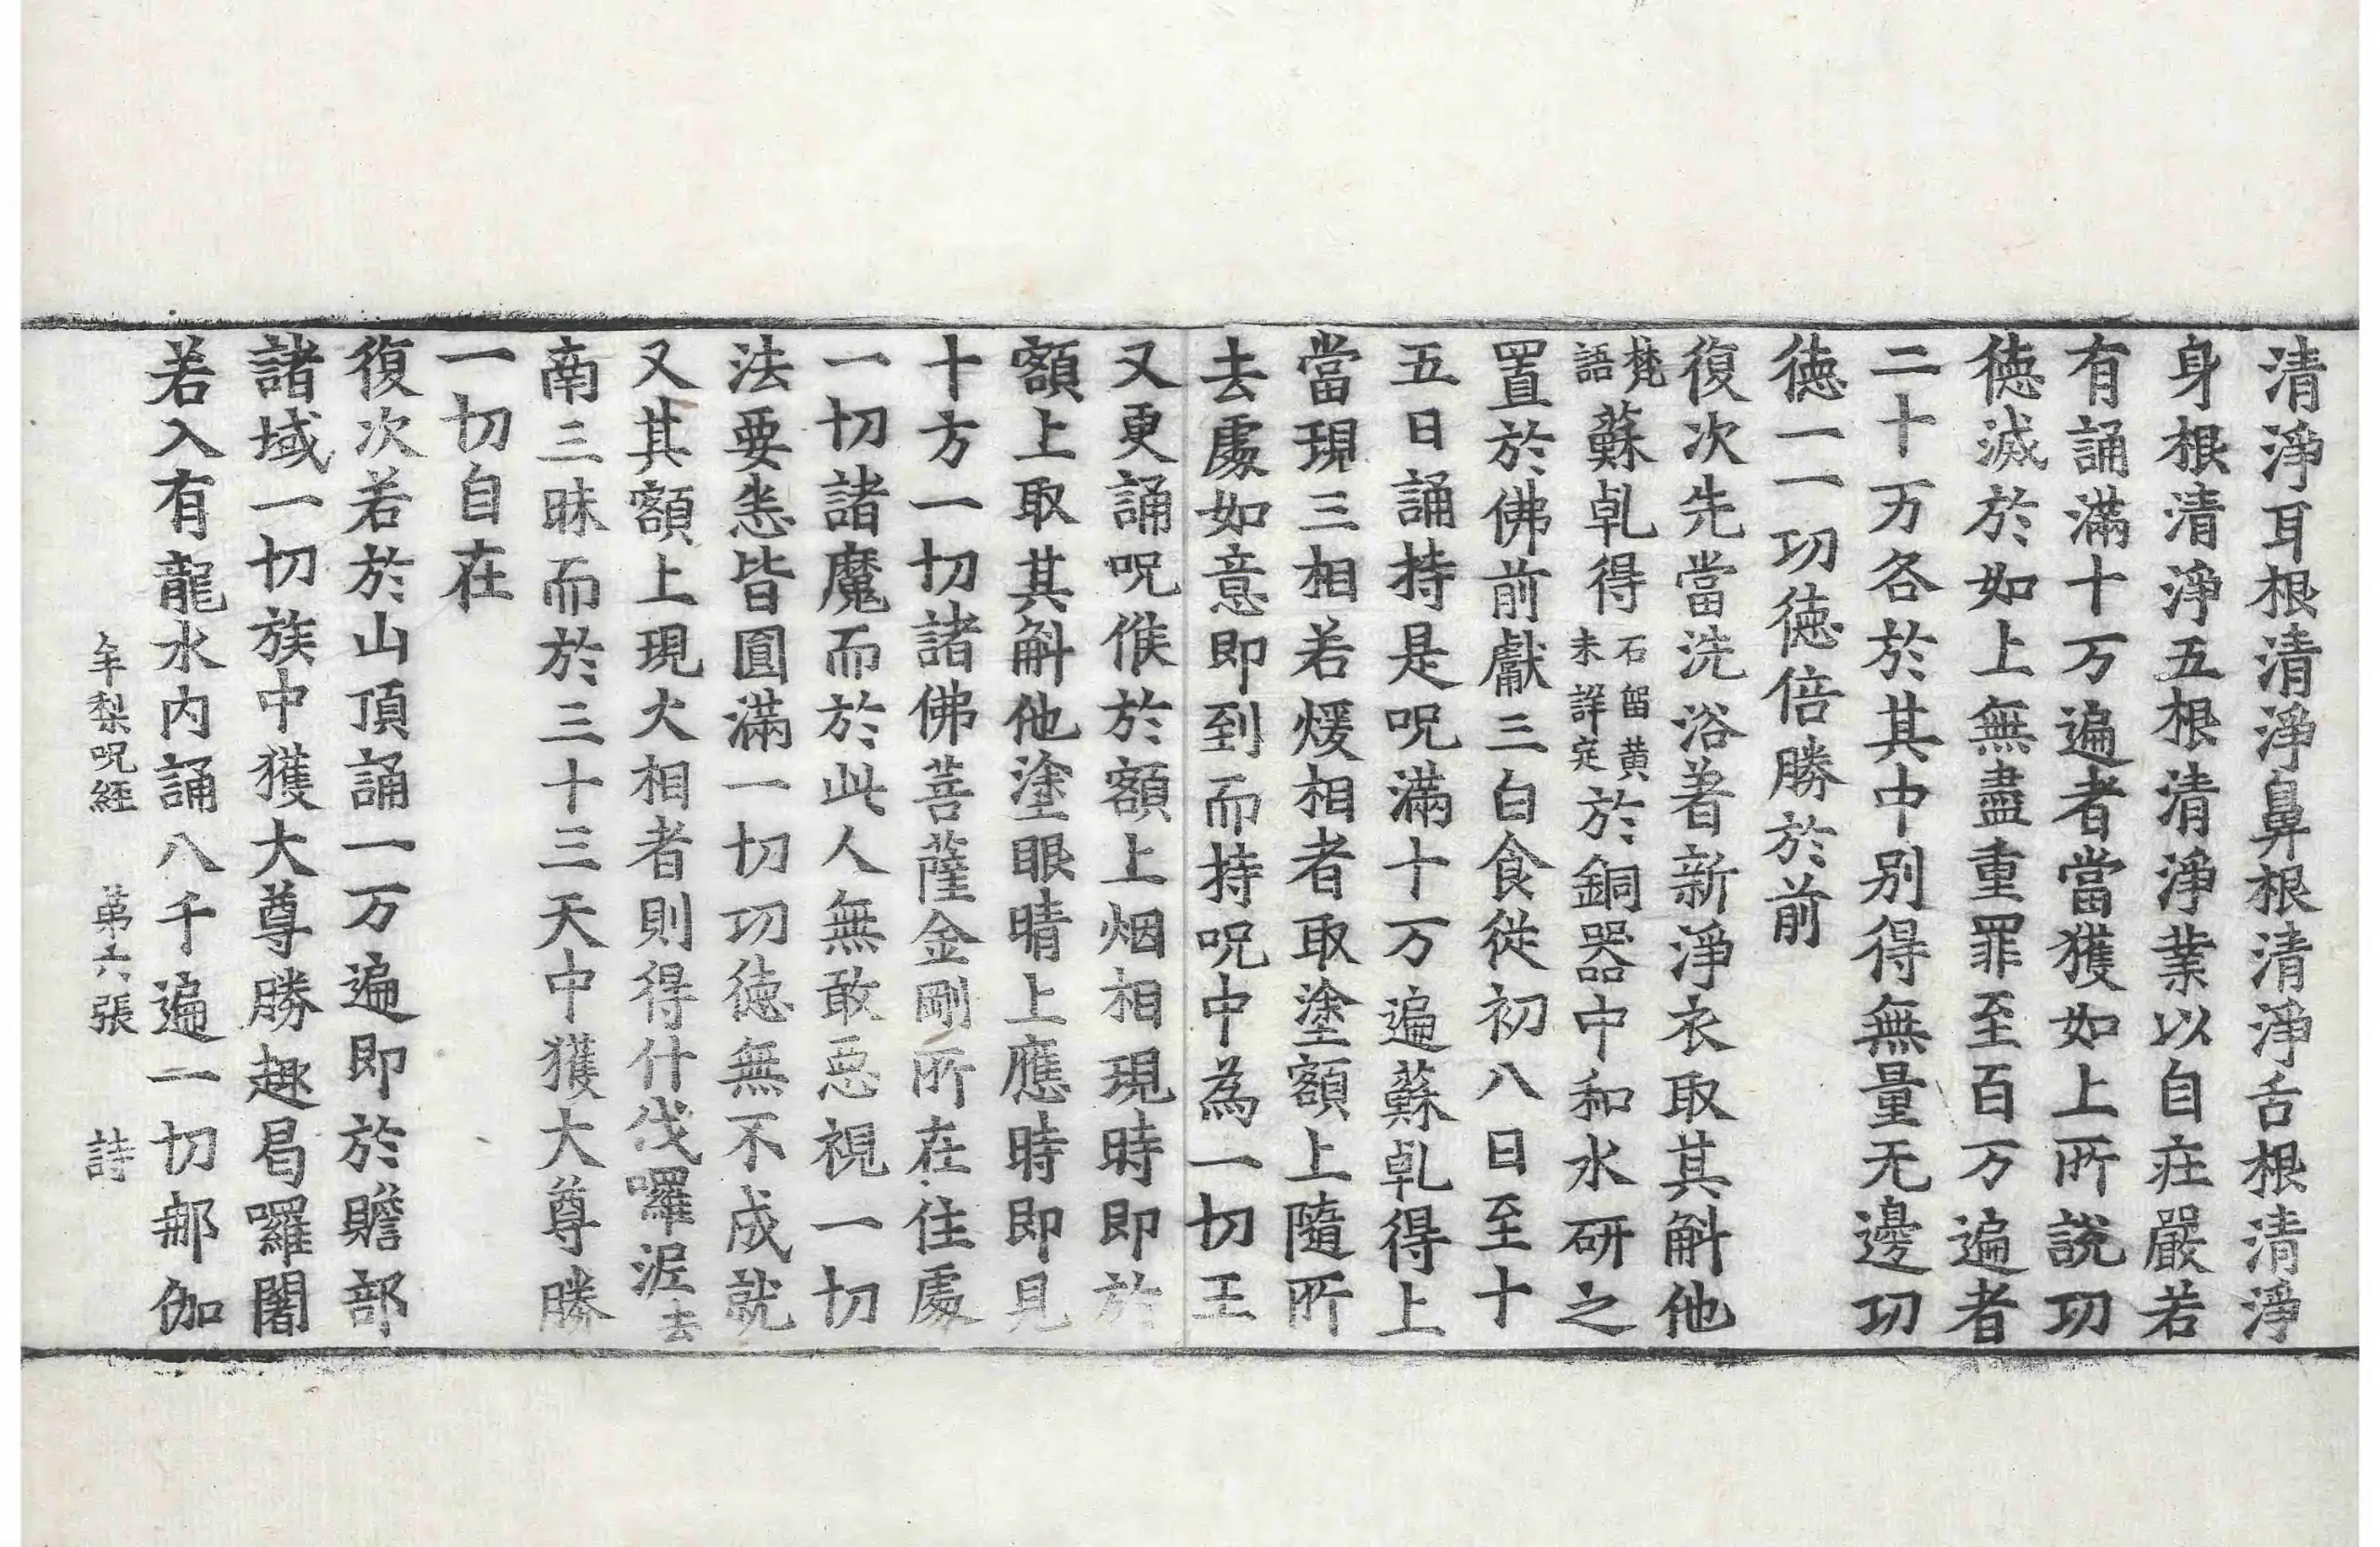 清淨耳根清淨鼻根清淨舌根清淨
身根清淨五根清淨業以自莊嚴若
有誦滿十万遍者當獲如上所說功
德滅於如上無盡重罪至百万遍者
二十万各於其中別得無量无邊功
德一一功德倍勝於前
復次先當洗浴著新淨衣取其斛他
梵語蘇乹得石留黃未詳定於銅器中和水研之
置於佛前獻三白食從初八日至十
五日誦持是呪滿十万遍蘇乹得上
當現三相若煖相者取塗額上隨所
去處如意即到而持呪中為一切王
又更誦呪候於額上烟相現時即於
額上取其斛他塗眼睛上應時即見
十方一切諸佛菩薩金剛所在住處
一切諸魔而於此人無敢惡視一切
法要悉皆圓滿一切功德無不成就
又其額上現火相者則得什伐囉泥去
南三昧而於三十三天中獲大尊勝
一切自在
復次若於山頂誦一万遍即於贍部
諸域一切族中獲大尊勝趣曷囉闍
若入有龍水內誦八千遍一切那伽
牟梨呪經 第六張 詩